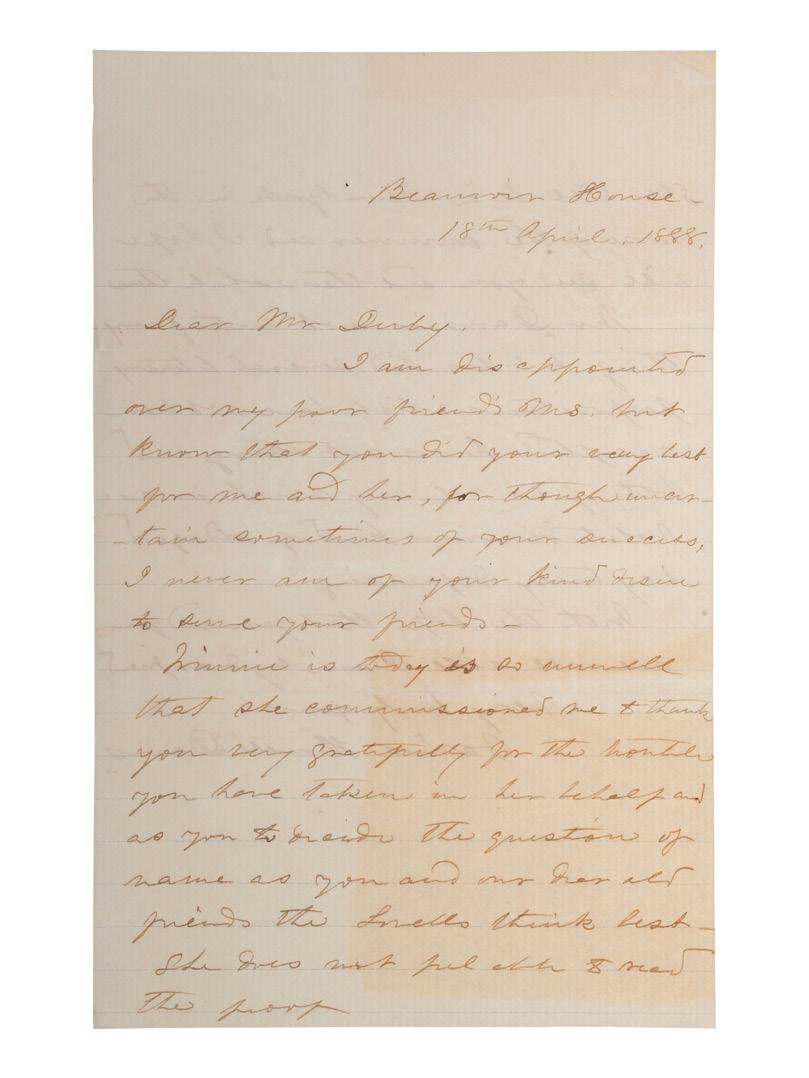 Beauvoir House -
18th April, 1888.
Dear Mr Derby.
I am disappointed
over my poor friend's Ms. but
know that you did your very best
for me and her, for though uncer-
tain sometimes of your success,
I never am of your kind desire
to serve your friends -
Winnie is today is so unwell
that she commissioned me to thank
you very gratefully for the trouble
you have taken in her behalf and
as you to decide the question of
name as you and our dear old
friends the Lovells think best -
She does not feel able to read
the proof